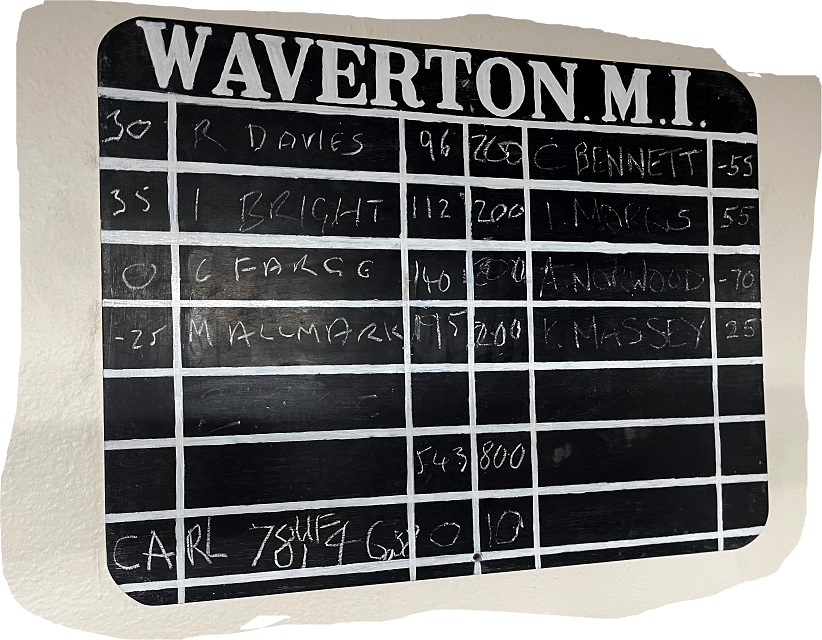 WAVERTON. M.I.
30 R DAVIES 96 200 C BENNETT -55
35 I BRIGHT 112 200 I. MORRIS 55
0 C FARGE 140 200 A. NORWOOD -70
-25 M ALLMARK 195 200 K. MASSEY 25
543 800
CARL 0 10